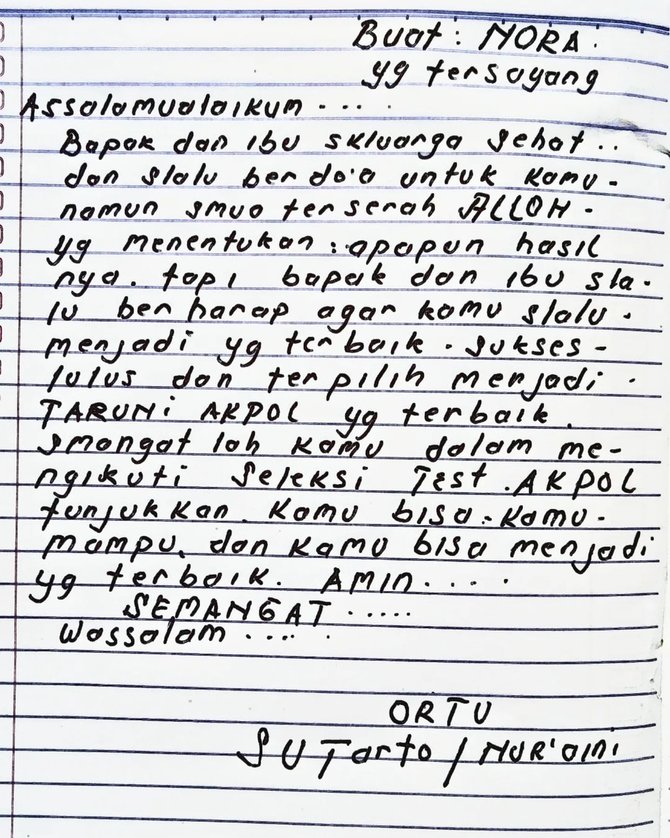 Buat : NORA.
yg tersayang
Assalamualaikum ....
Bapak dan ibu skluarga sehat..
dan slalu berdo'a untuk kamu.
namun smua terserah ALLOH.
yg menentukan : apapun hasil
nya. tapi bapak dan ibu sla.
lu berharap agar kamu slalu.
menjadi yg terbaik. sukses -
lulus dan terpilih menjadi.
TARUNi AKPOL yg terbaik.
smangat lah kamu dalam me-
ngikuti seleksi Test. AKPOL
tunjukkan. kamu bisa. kamu.
mampu. dan kamu bisa menjadi
yg terbaik. AMIN.....
SEMANGAT.....
Wassalam ....
ORTU
SUTarto / NUR'aini